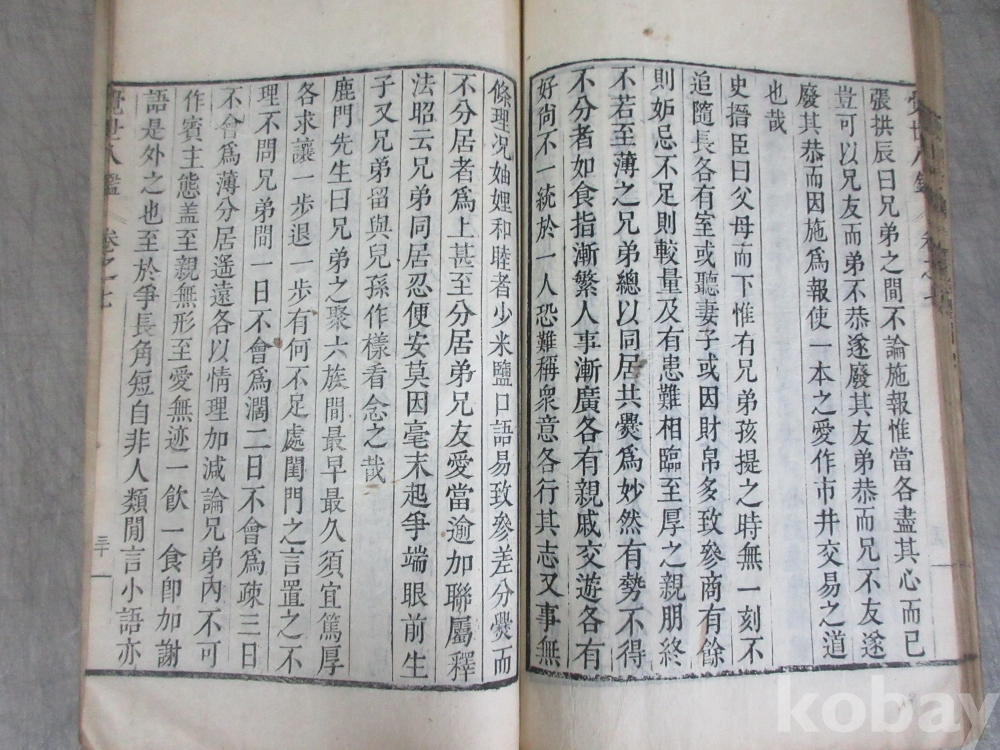 張拱辰曰兄弟之間不論施報惟當各盡其心而已
豈可以兄友而弟不恭遂廢其友弟恭而兄不友遂
廢其恭而因施爲報使一本之愛作市井交易之道
也哉
史搢臣曰父母而下惟有兄弟孩提之時無一刻不
追隨長各有室或聽妻子或因財帛多致參商有餘
則妒忌不足則較量及有患難相臨至厚之親朋終
不若至薄之兄弟總以同居共爨爲妙然有勢不得
不分者如食指漸繁人事漸廣各有親戚交遊各有
好尚不一統於一人恐難稱衆意各行其志又事無
條理况妯娌和睦者少米鹽口語易致參差分爨而
不分居者爲上甚至分居弟兄友愛當逾加聯屬釋
法昭云兄弟同居忍便安莫因毫末起爭端眼前生
子又兄弟留與兒孫作樣看念之哉
鹿門先生曰兄弟之聚六族間最早最久須宜篤厚
各求讓一步退一步有何不足處閨門之言置之不
理不問兄弟間一日不會爲濶二日不會爲疎三日
不會爲薄分居遙遠各以情理加減論兄弟內不可
作賓主態盖至親無形至愛無迹一飲一食卽加謝
語是外之也至於爭長角短自非人類閒言小語亦
覺世八鑑 卷之七 三十
kobay